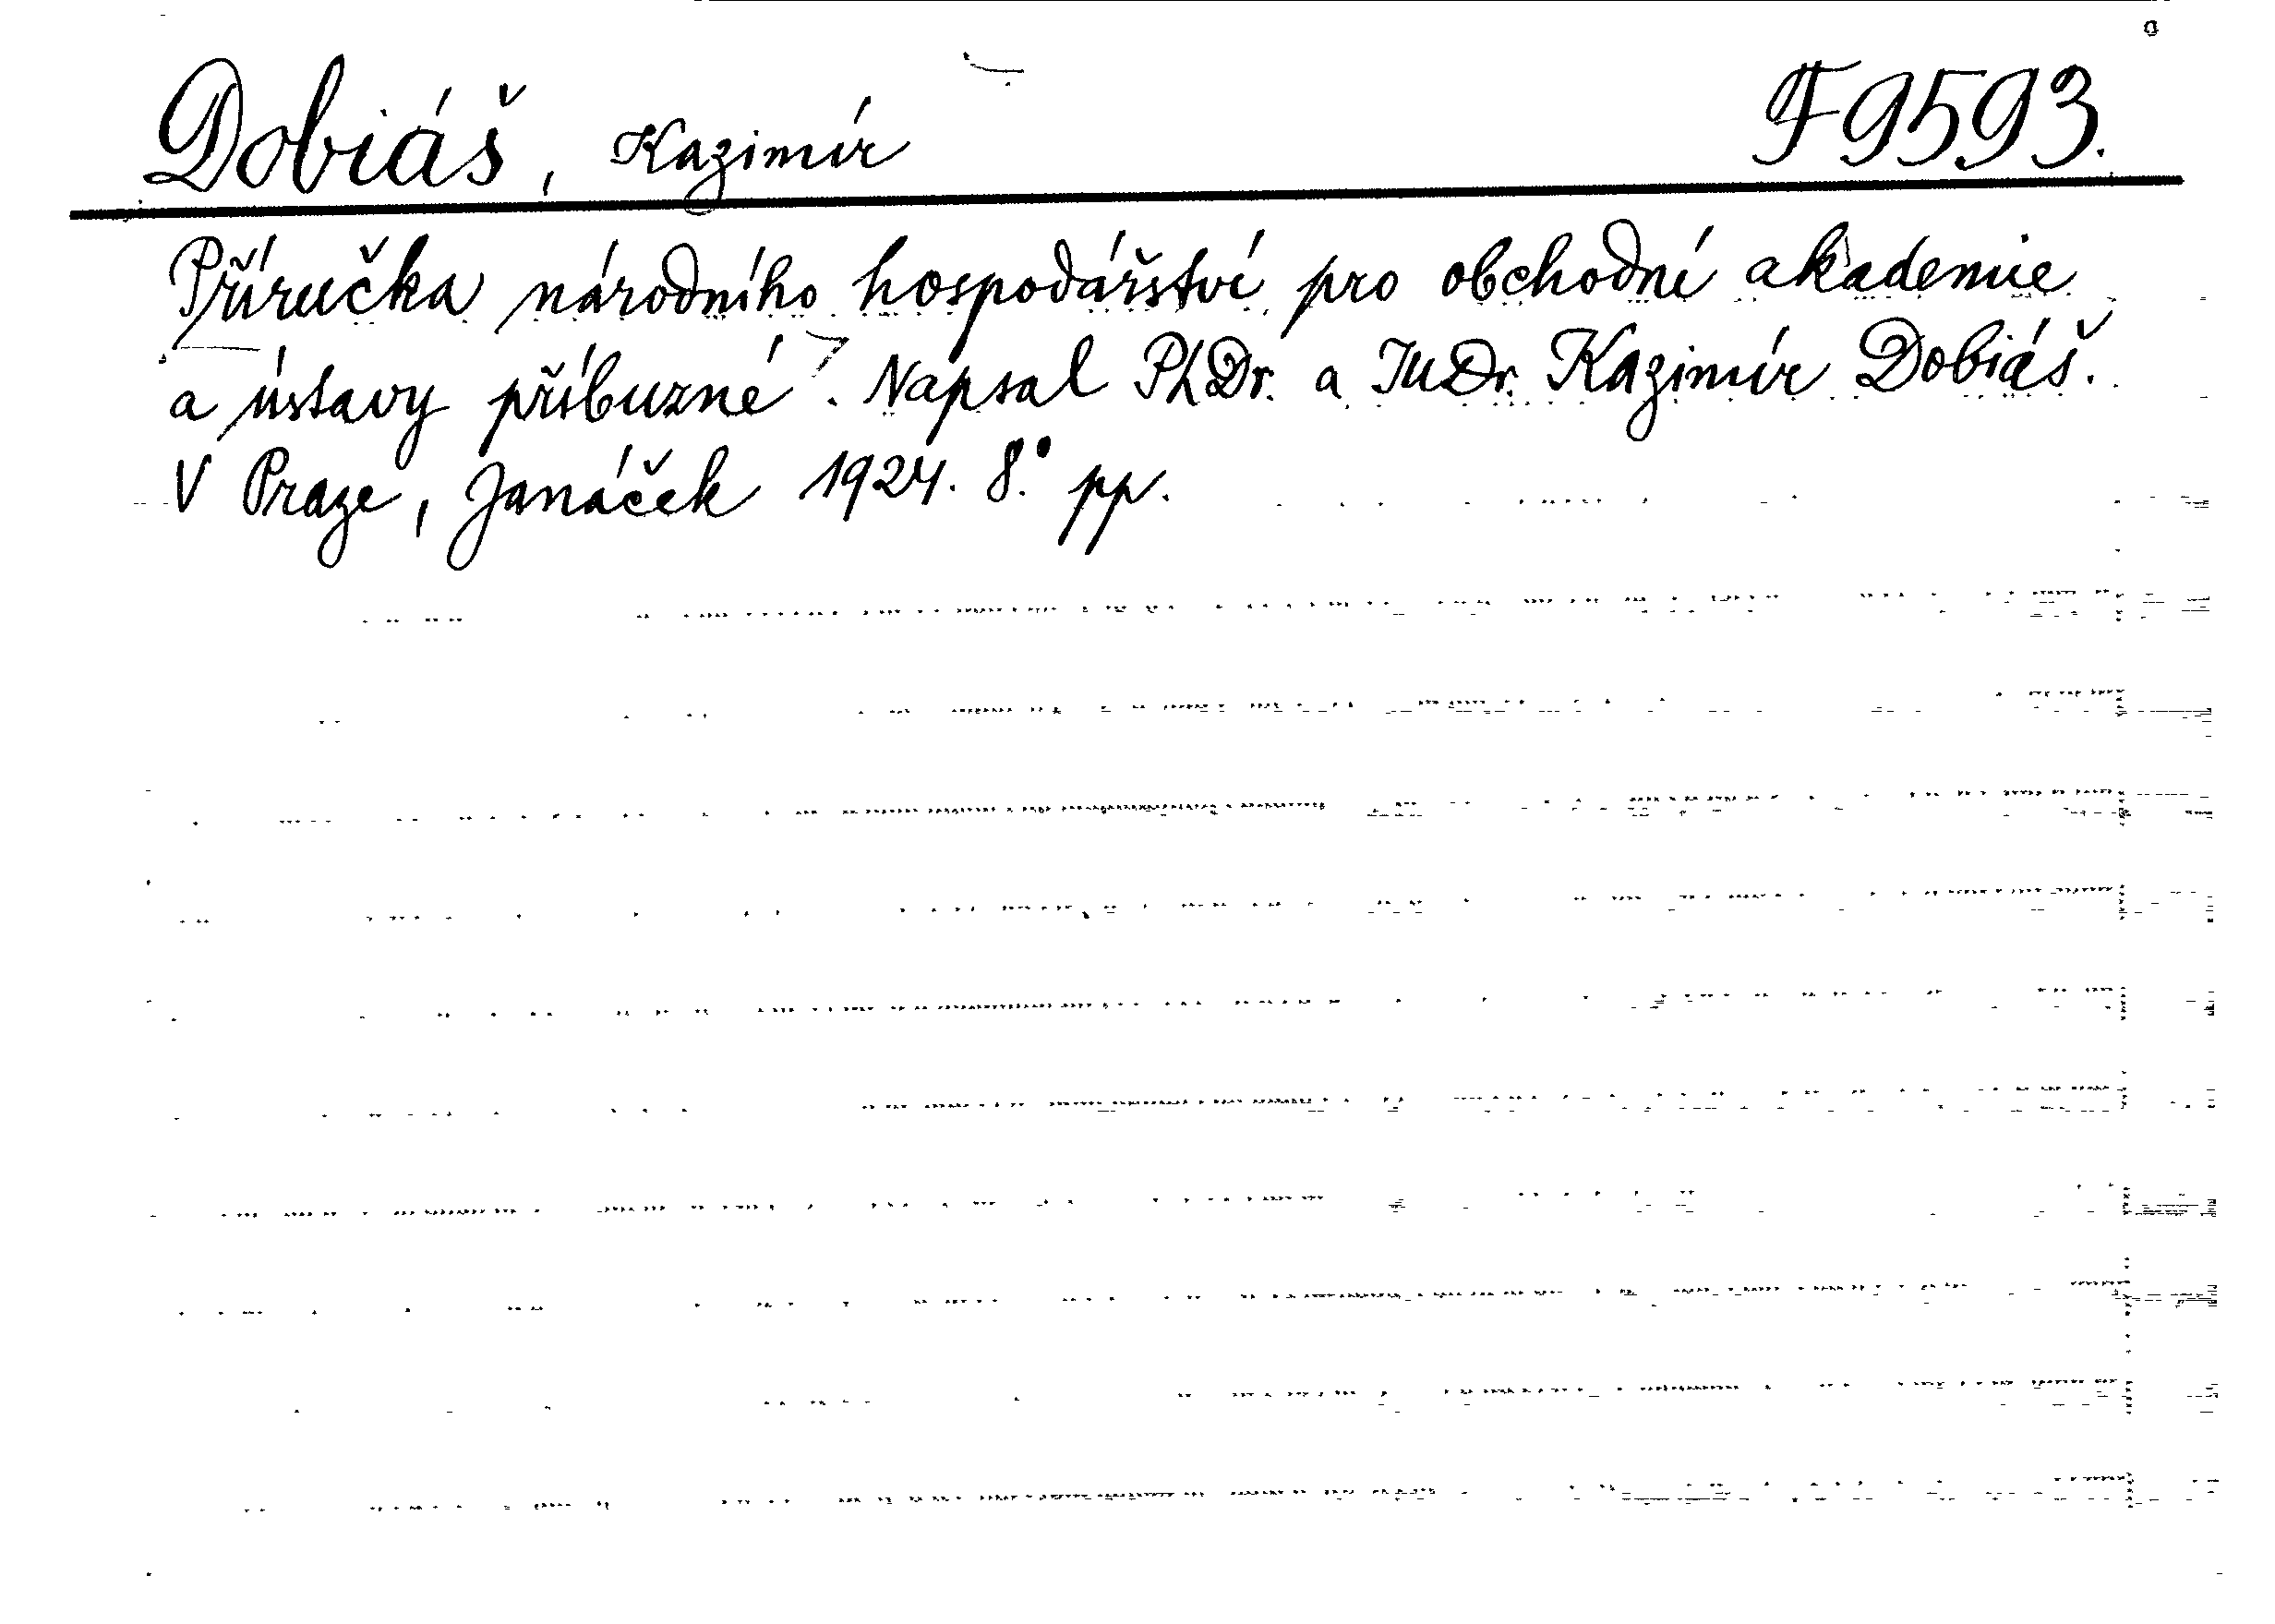 Dobiáš, Kazimír F 9593.
Příručka národního hospodářství pro obchodní akademie
a ústavy příbuzné. Napsal PhDr. a JUDr. Kazimír Dobiáš.
V Praze, Janáček 1924. 8.° pp.